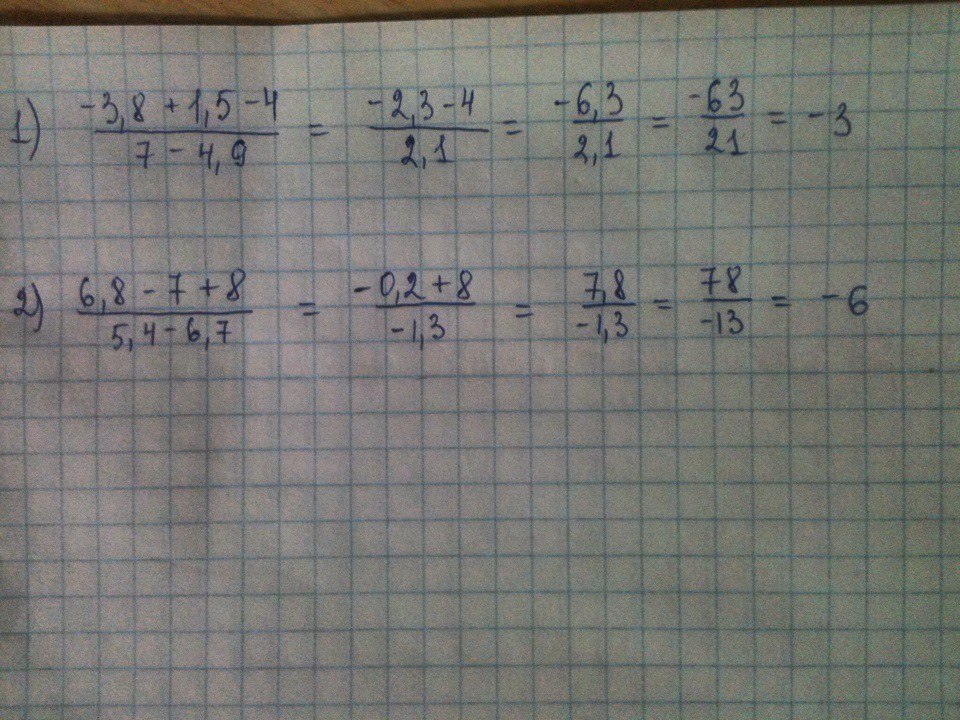 1) (-3,8 + 1,5 - 4)/(7 - 4,9) = (-2,3 - 4)/(2,1) = (-6,3)/(2,1) = (-63)/(21) = -3
2) (6,8 - 7 + 8)/(5,4 - 6,7) = (-0,2 + 8)/(-1,3) = (7,8)/(-1,3) = (78)/(-13) = -6